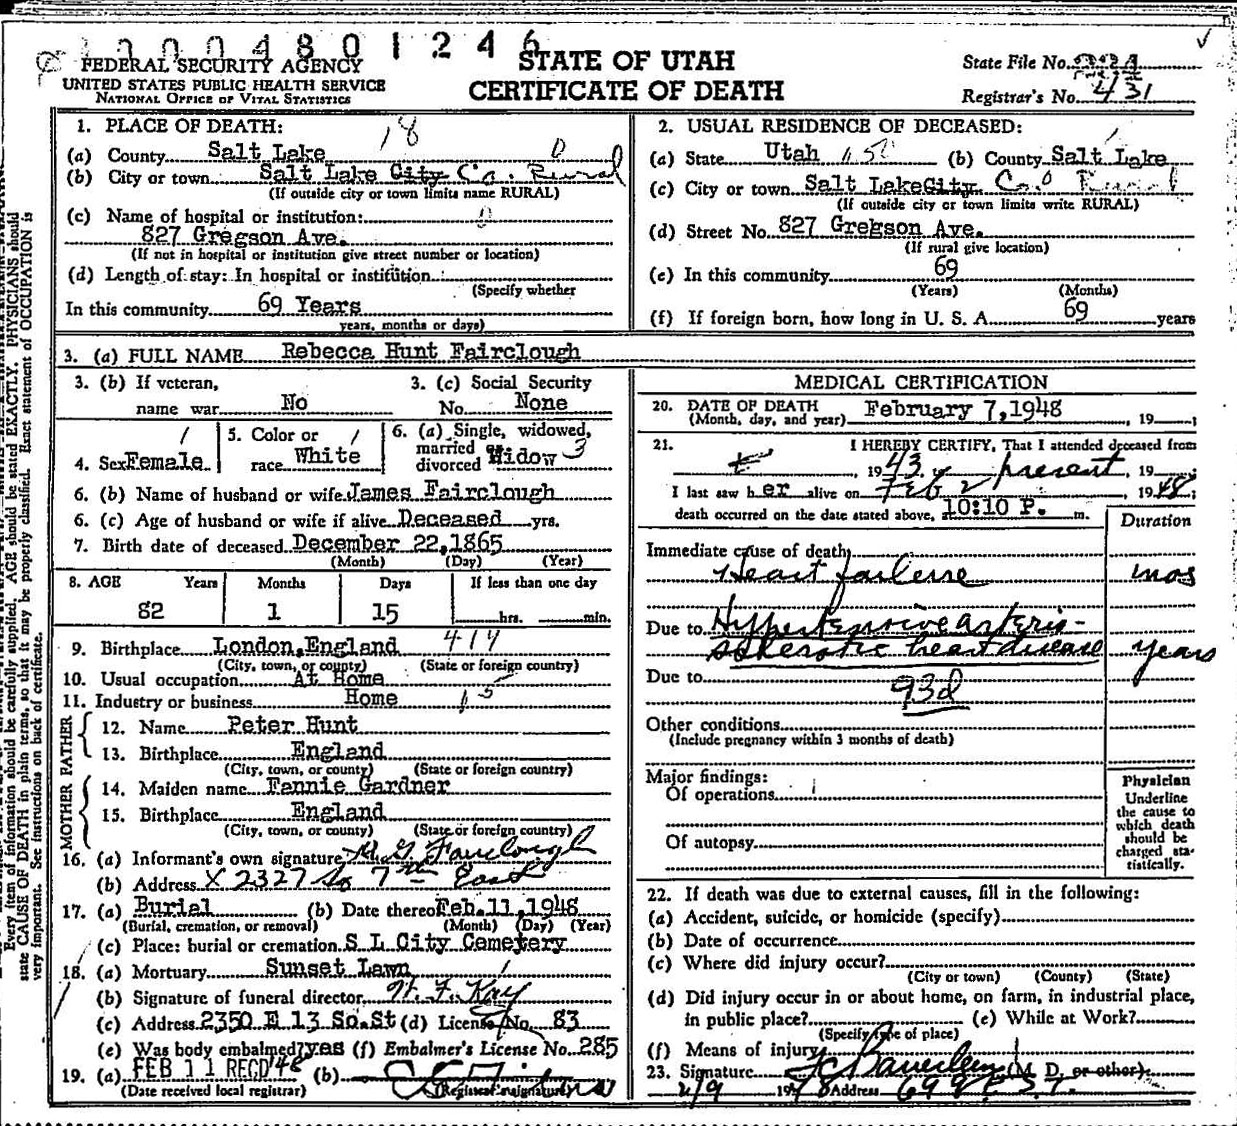 1000480 1246
FEDERAL SECURITY AGENCY
UNITED STATES PUBLIC HEALTH SERVICE
NATIONAL OFFICE OF VITAL STATISTICS
STATE OF UTAH
CERTIFICATE OF DEATH
State File No.
Registrar's No. 431
1. PLACE OF DEATH: 18
(a) County Salt Lake
(b) City or town Salt Lake City Co. Rural
(If outside city or town limits name RURAL)
(c) Name of hospital or institution: 0
827 Gregson Ave.
(If not in hospital or institution give street number or location)
(d) Length of stay: In hospital or institution
(Specify whether
In this community 69 Years
years, months or days)
2. USUAL RESIDENCE OF DECEASED:
(a) State Utah (b) County Salt Lake
(c) City or town Salt LakeCity Co. Rural
(If outside city or town limits write RURAL)
(d) Street No. 827 Gregson Ave.
(If rural give location)
(e) In this community 69
(Years) (Months)
(f) If foreign born, how long in U. S. A. 69 years
3. (a) FULL NAME Rebecca Hunt Fairclough
3. (b) If veteran,
name war No
3. (c) Social Security
No. None
4. Sex Female
5. Color or
race White
6. (a) Single, widowed,
married or
divorced Widow 3
6. (b) Name of husband or wife James Fairclough
6. (c) Age of husband or wife if alive Deceased yrs.
7. Birth date of deceased December 22,1865
(Month) (Day) (Year)
8. AGE Years Months Days If less than one day
82 1 15 hrs. min.
9. Birthplace London,England
(City, town, or county) (State or foreign country)
10. Usual occupation At Home
11. Industry or business Home
FATHER
12. Name Peter Hunt
13. Birthplace England
(City, town, or county) (State or foreign country)
MOTHER
14. Maiden name Fannie Gardner
15. Birthplace England
(City, town, or county) (State or foreign country)
16. (a) Informant's own signature Fairclough
(b) Address X 2327 So 7th East
17. (a) Burial (b) Date thereof Feb.11,1948
(Burial, cremation, or removal) (Month) (Day) (Year)
(c) Place: burial or cremation S L City Cemetery
18. (a) Mortuary Sunset Lawn
(b) Signature of funeral director Kay
(c) Address 2350 E 13 So.St (d) License No. 83
(e) Was body embalmed? yes (f) Embalmer's License No. 285
19. (a) FEB 11 RECD '48 (b)
(Date received local registrar) (Registrar's signature)
MEDICAL CERTIFICATION
20. DATE OF DEATH February 7,1948, 19 ;
(Month, day, and year)
21. I HEREBY CERTIFY, That I attended deceased from
19 43 present, 19 ;
I last saw h er alive on Feb 2, 19 48;
death occurred on the date stated above, at 10:10 P. m.
Duration
Immediate cause of death
Heart failure mos
Due to Hypertensive arterio-
sclerotic heart disease years
Due to
93d
Other conditions
(Include pregnancy within 3 months of death)
Major findings:
Of operations
Of autopsy
Physician
Underline
the cause to
which death
should be
charged sta-
tistically.
22. If death was due to external causes, fill in the following:
(a) Accident, suicide, or homicide (specify)
(b) Date of occurrence
(c) Where did injury occur?
(City or town) (County) (State)
(d) Did injury occur in or about home, on farm, in industrial place,
in public place? (e) While at Work?
(Specify type of place)
(f) Means of injury
23. Signature (M. D. or other)
2/9 1948 Address 699 E. S. T.
Every item of information should be carefully supplied. AGE should be stated EXACTLY. PHYSICIANS should
state CAUSE OF DEATH in plain terms, so that it may be properly classified. Exact statement of OCCUPATION is
very important. See instructions on back of certificate.